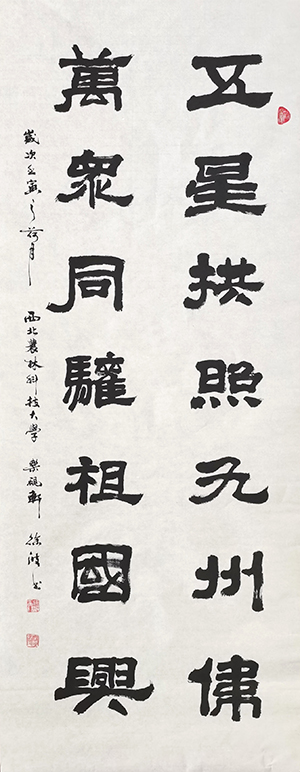 五星拱照九州
萬眾同驩祖國興
歲次壬寅之荷月 西北農林科技大學 樂硯軒 徐 书